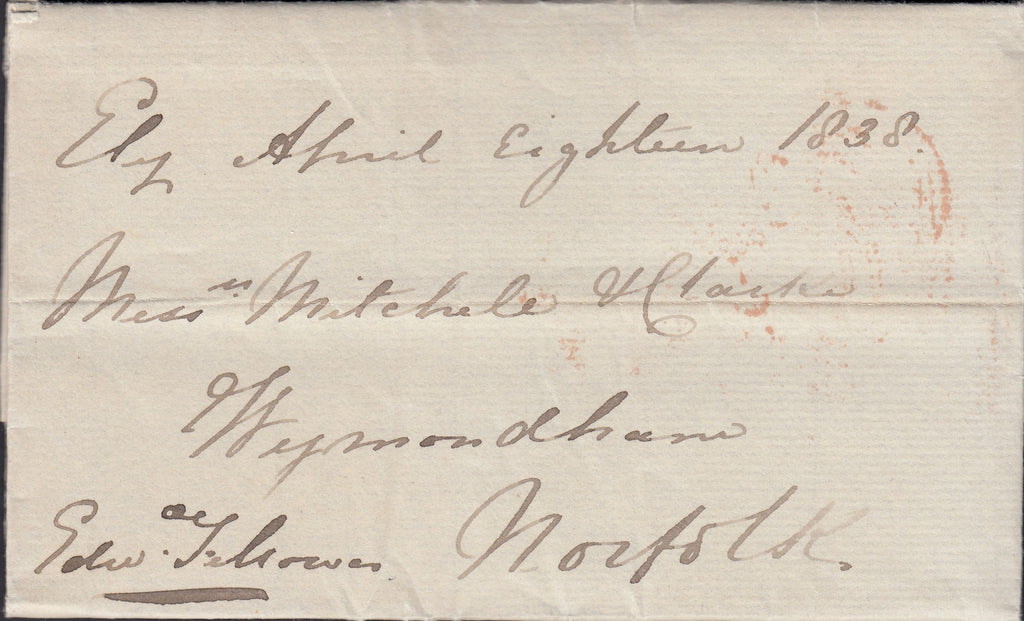 Ely April Eighteen 1838.
Messrs Mitchell & Clarke
Wymondham
Norfolk.
Edw. Fellowes